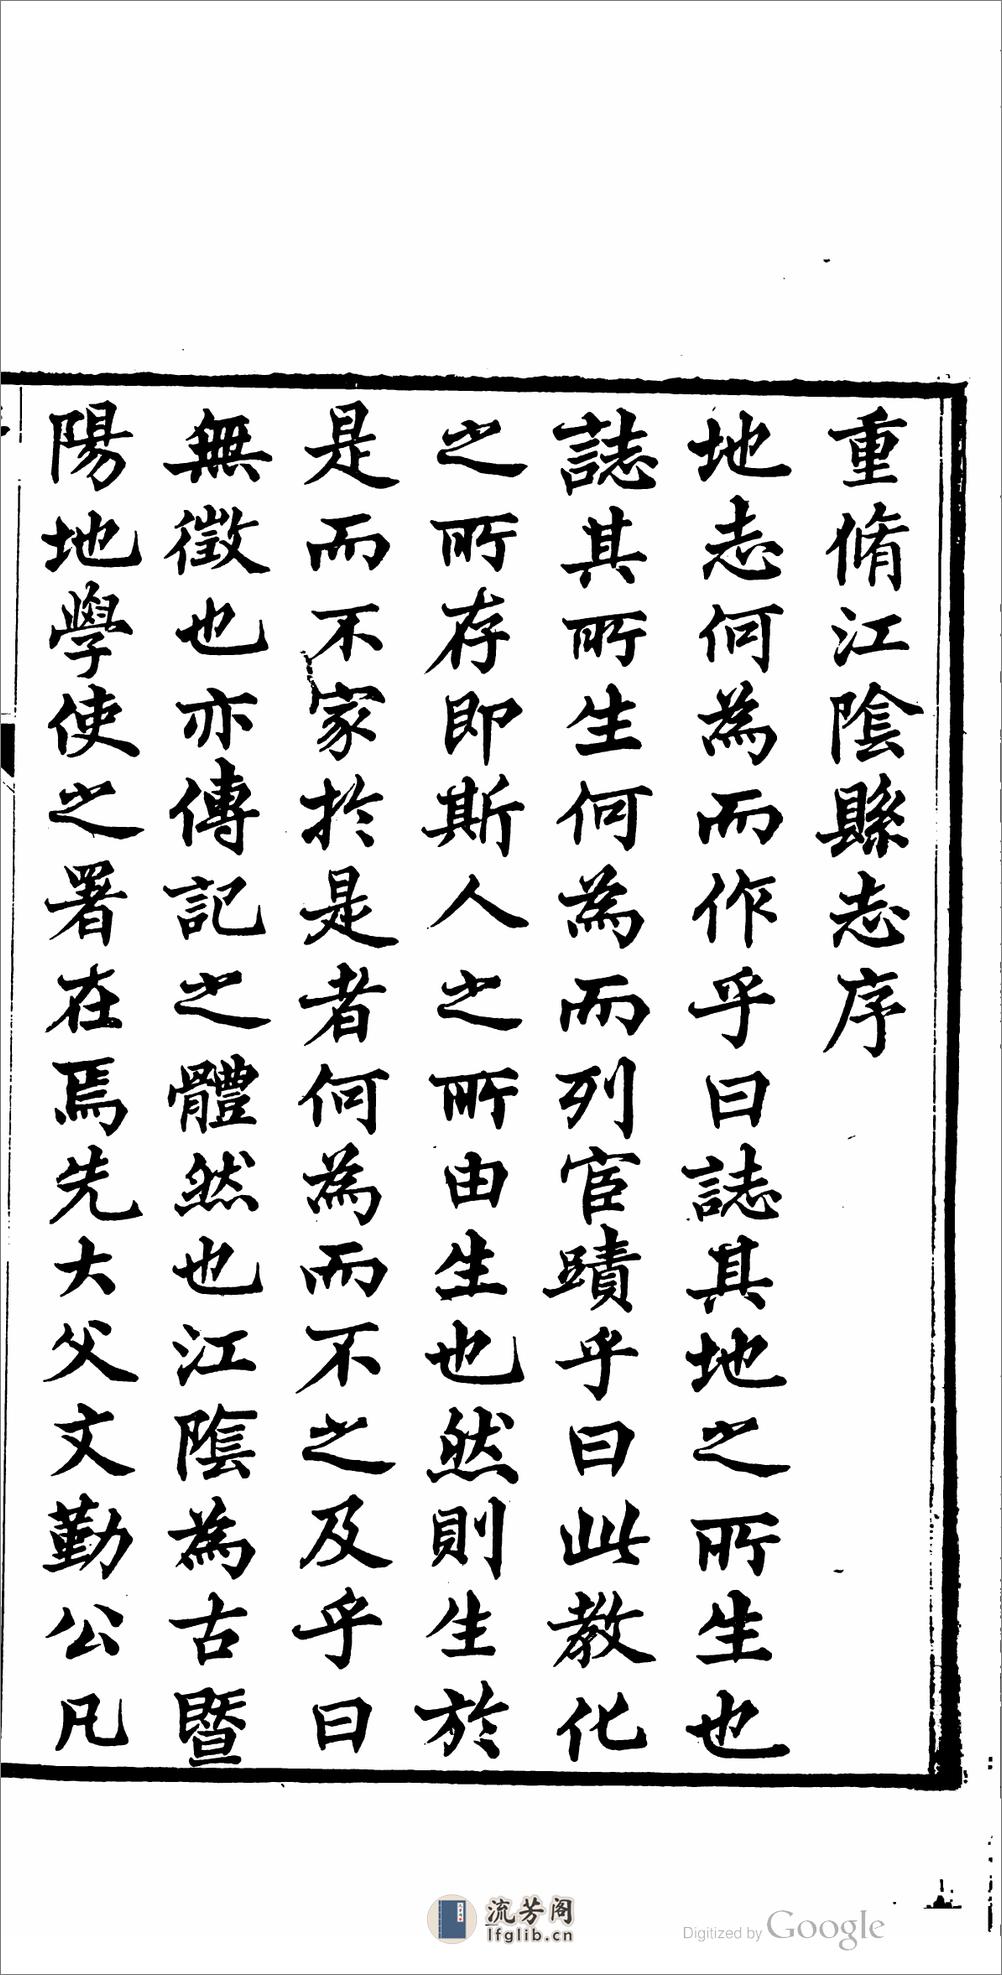 重脩江陰縣志序
地志何為而作乎曰誌其地之所生也
誌其所生何為而列宦蹟乎曰此教化
之所存即斯人之所由生也然則生於
是而不家於是者何為而不之及乎曰
無徵也亦傳記之體然也江陰為古暨
陽地學使之署在焉先大父文勤公凡
流芳阁
lfglib.cn
Digitized by Google